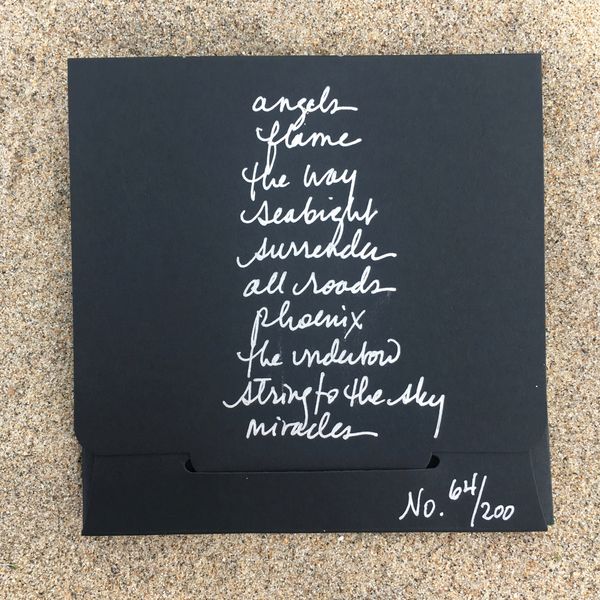 angels
flame
the way
seabight
surrender
all roads
phoenix
the undertow
string to the sky
miracles
No. 64/200